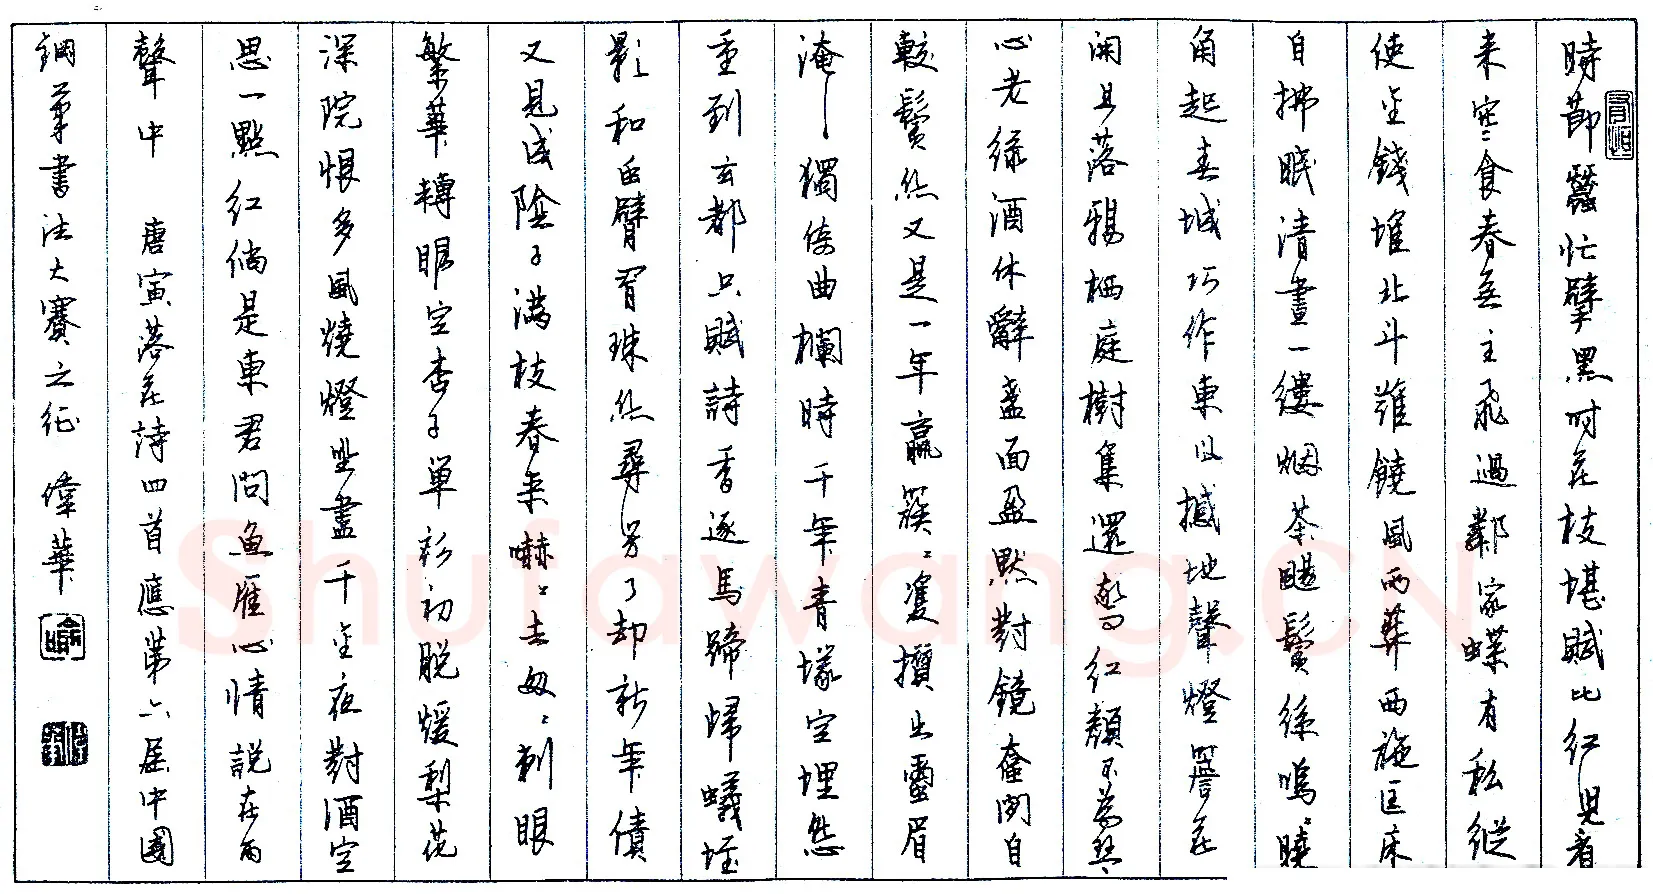 時節蠶忙擘黑时花枝堪賦比红児看
来寒食春無主飛過鄰家蝶有私縱
使金錢堆北斗難饒風雨葬西施匡床
自拂眠清晝一縷烟茶颺鬓絲嗚〻曉
角起春城巧作東風撼地聲燈花
開且落鴉栖庭樹集還驚红顏不為琴
心老绿酒休辭盞面盈默對鏡奩閑自
較鬓丝又是一年赢簇〻雙攢出蚕眉
淹〻獨倚曲欄時千年青塚空埋怨
重到玄都只賦詩香逐馬蹄歸蟻垤
影和臂罥珠丝尋芳了却新年債
又見成陰子满枝春来嚇〻去匆〻刺眼
繁華轉眼空杏子单衫初脱煖梨花
深院恨多風燒燈坐盡千金夜對酒空
思一點红倘是東君問鱼雁心情説在雨
聲中 唐寅落花詩四首應第六届中國
鋼筆書法大賽之征 偉華
Shufawang.CN